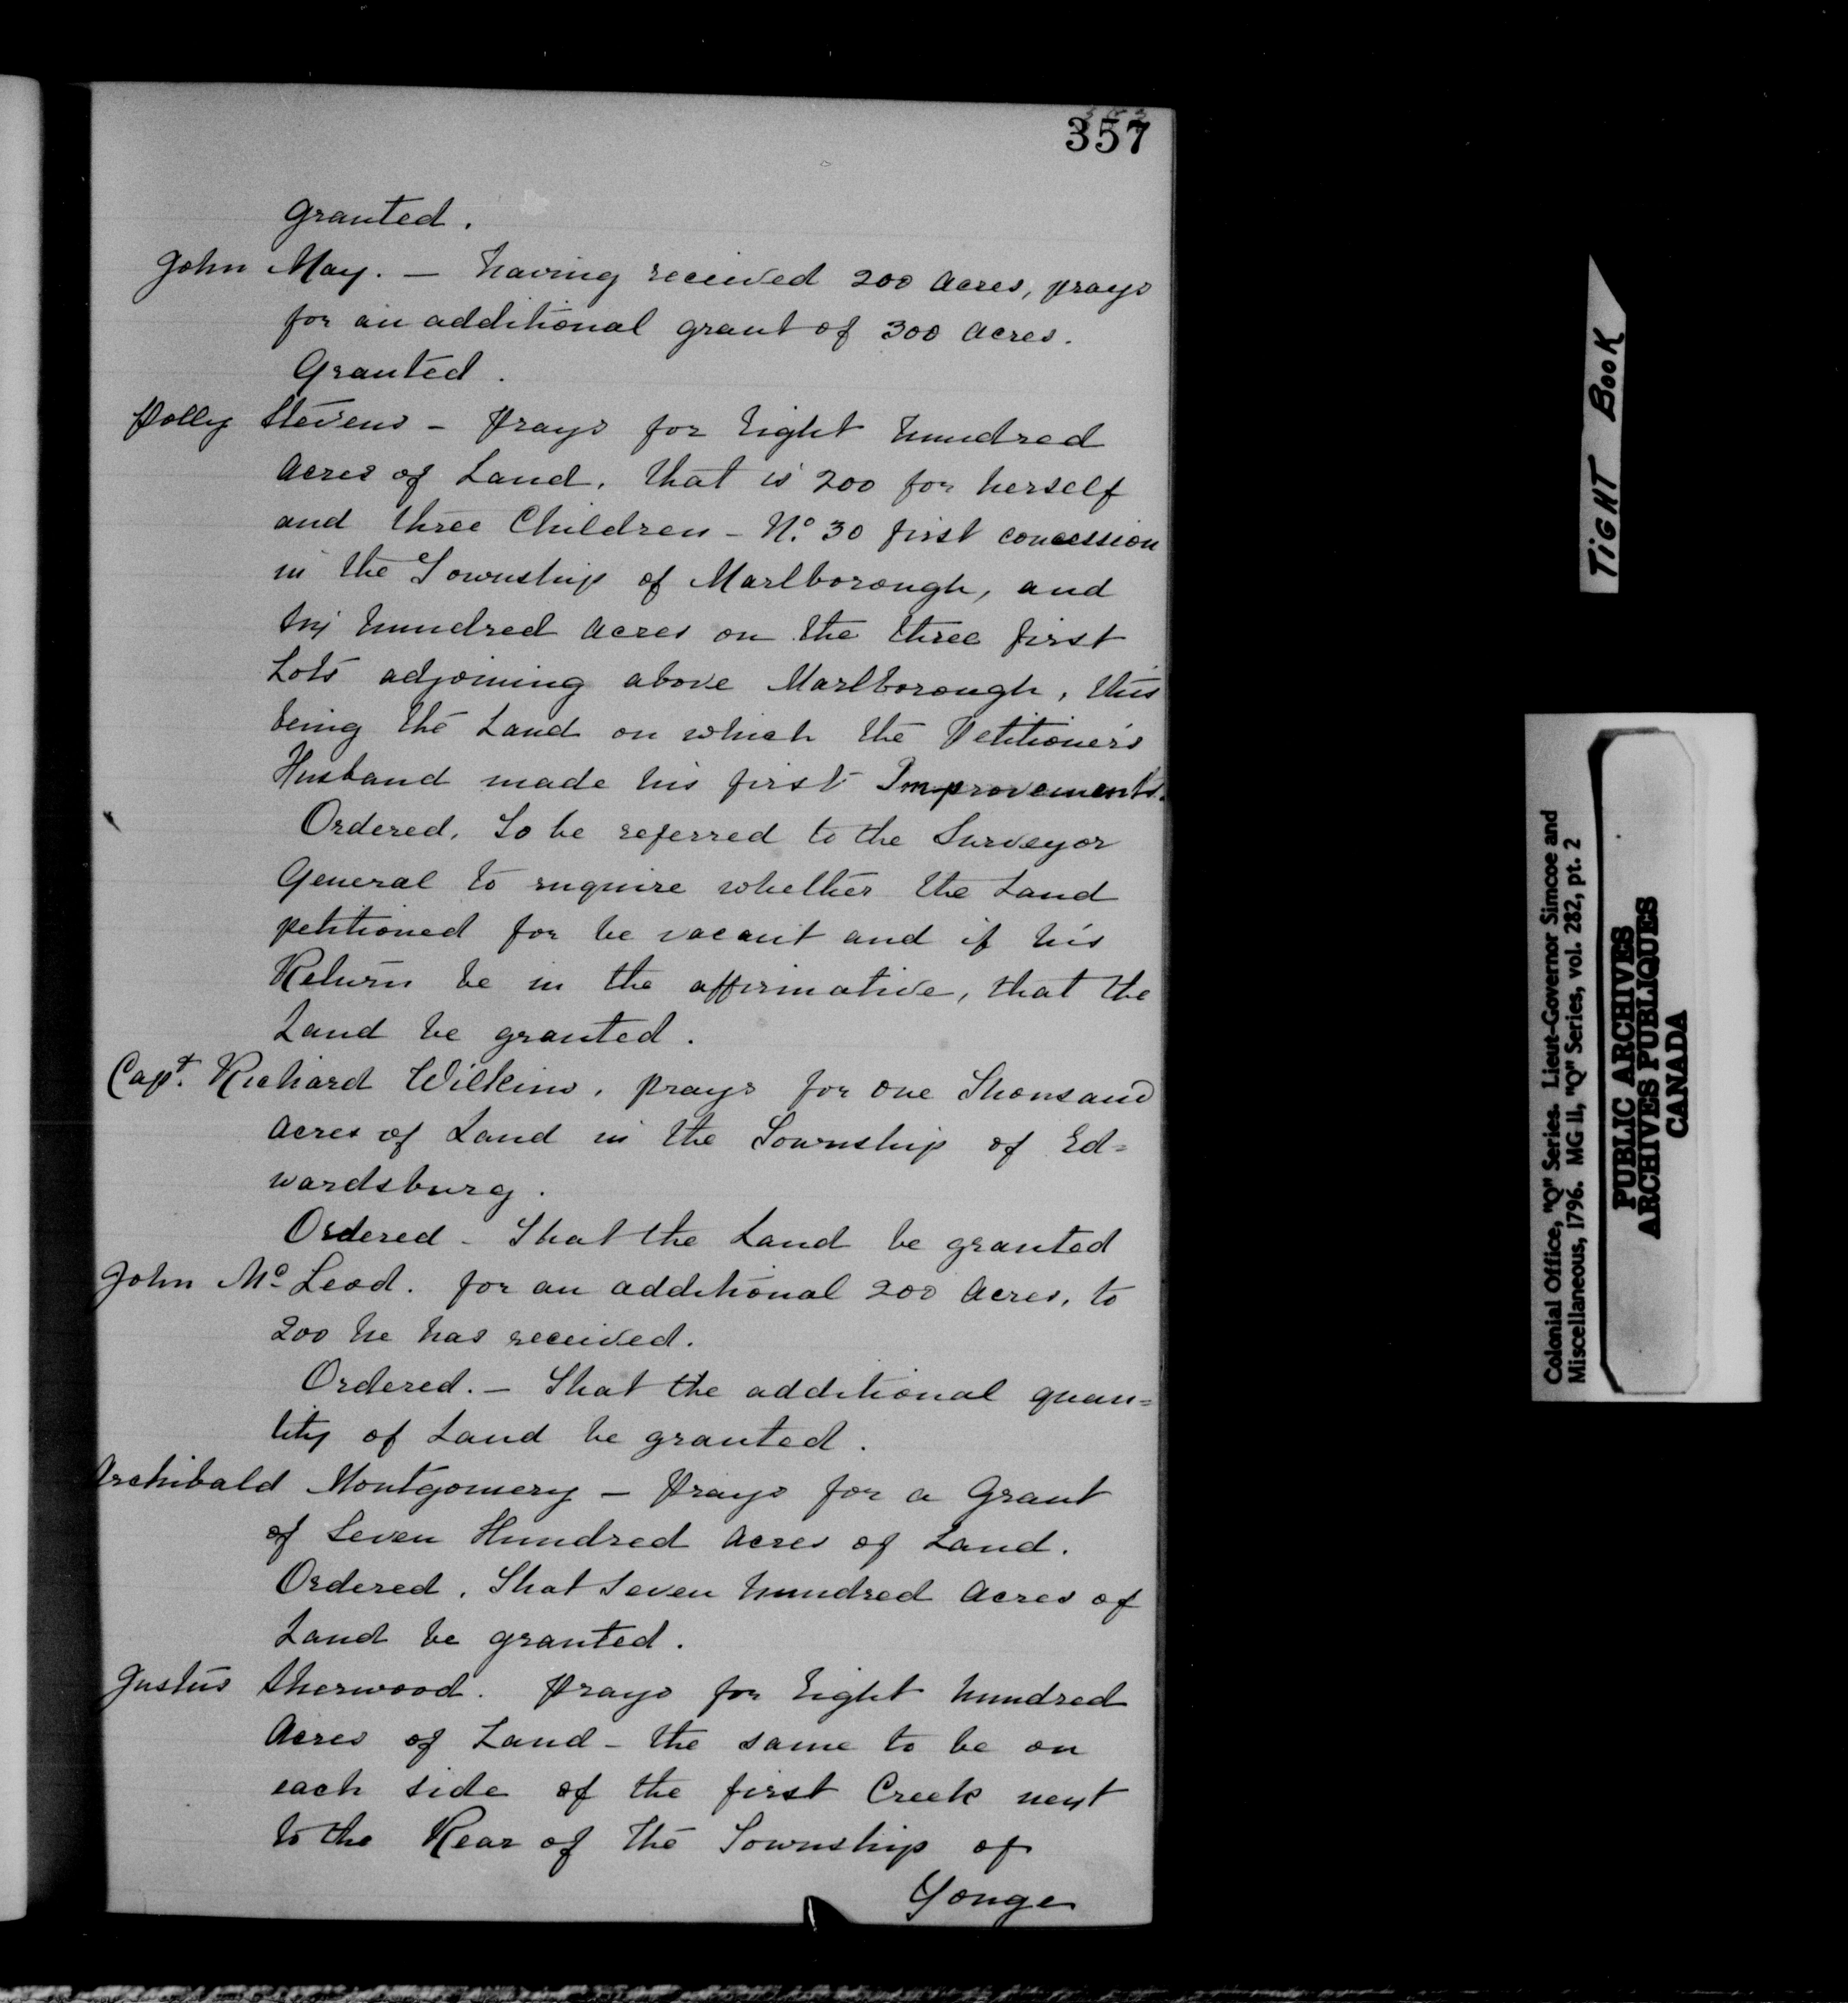 357
granted.
John May. — having received 200 acres, prays
for an additional grant of 300 acres.
Granted.
Polly Stevens – Prays for Eight hundred
acres of Land, that is 200 for herself
and three Children – No. 30 first concession
in the Township of Marlborough, and
six hundred acres on the three first
Lots adjoining above Marlborough, this
being the Land on which the Petitioner's
Husband made his first Improvements.
Ordered, To be referred to the Surveyor
General to enquire whether the Land
petitioned for be vacant and if his
Return be in the affirmative, that the
Land be granted.
Capt. Richard Wilkins, prays for one Thousand
acres of Land in the Township of Ed=
wardsburg.
Ordered – That the Land be granted
John McLeod. for an additional 200 acres, to
200 he has received.
Ordered. — That the additional quan=
tity of Land be granted.
Archibald Montgomery – Prays for a Grant
of Seven Hundred acres of Land.
Ordered, That Seven hundred acres of
Land be granted.
Justus Sherwood. Prays for Eight hundred
acres of Land – the same to be on
each side of the first Creek next
to the Rear of the Township of
Yonge
TIGHT BOOK
Colonial Office, "Q" Series. Lieut-Governor Simcoe and
Miscellaneous, 1796. MG 11, "Q" Series, vol. 282, pt. 2
PUBLIC ARCHIVES
ARCHIVES PUBLIQUES
CANADA